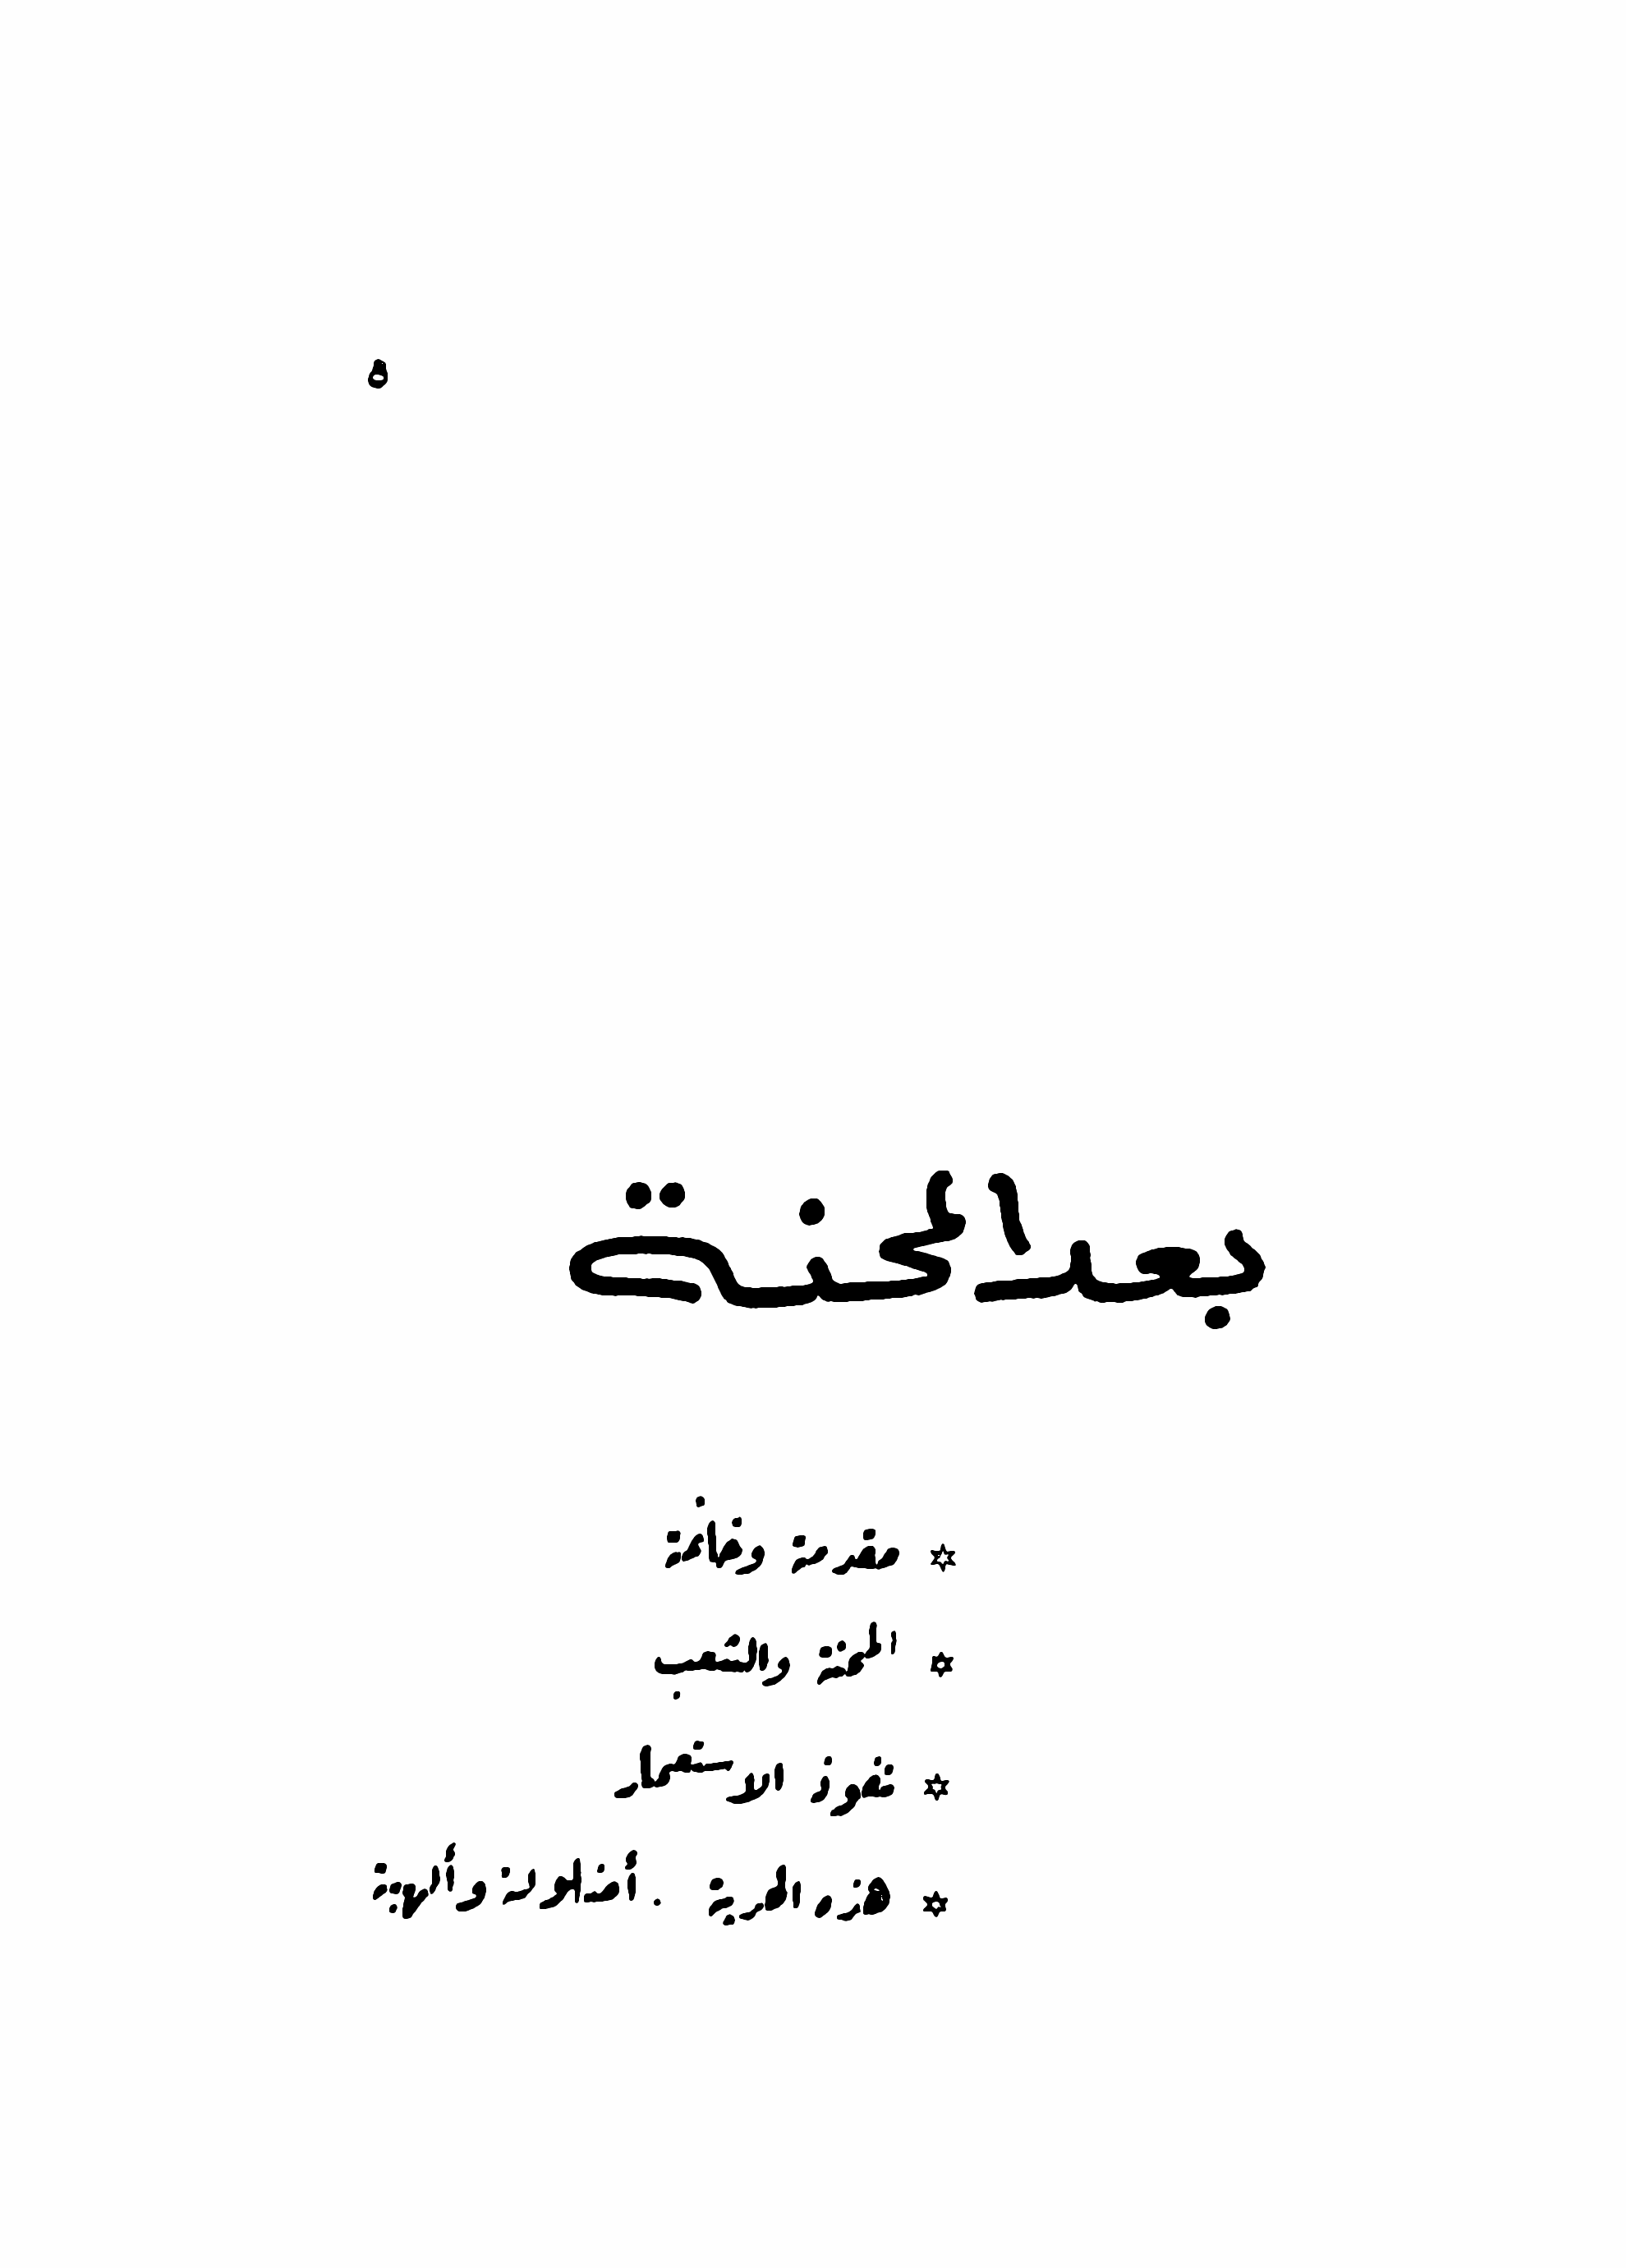 ٥
بعد المحنة
* مقدمة وخاتمة
* المحنة والشعب
* نفوذ الاستعمار
* هذه الحرية . أخلاقية وألهية